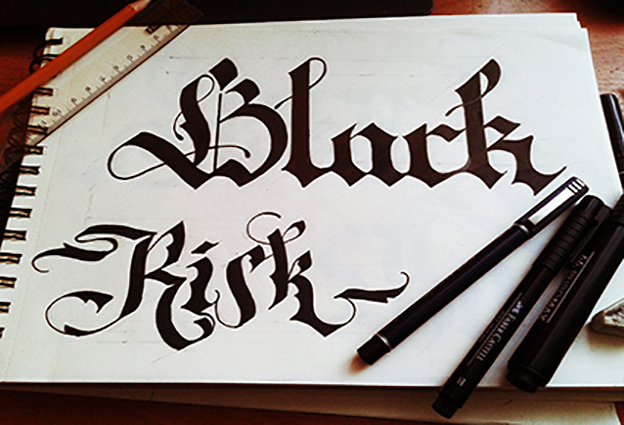 Black
Risk
FABER-CASTELL